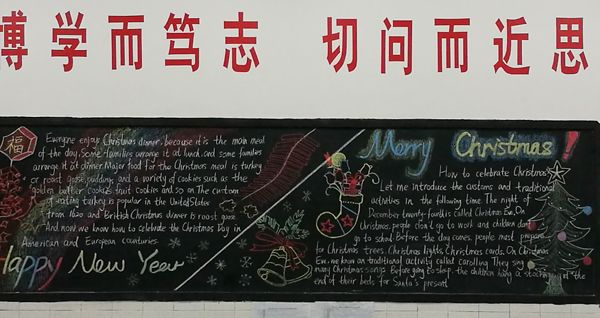 博学而笃志 切问而近思
福
Everyone enjoys Christmas dinner, because it is the main meal
of the day. Some families arrange it at lunch, and some families
arrange it at dinner. Major food for the Christmas meal is turkey
or roast goose, pudding, and a variety of cookies such as the
golden butter cookies, fruit cookies and so on. The custom
of eating turkey is popular in the United States
from 1620 and British Christmas dinner is roast goose
And now we know how to celebrate the Christmas Day in
American and European countries.
Happy New Year
Merry Christmas!
How to celebrate Christmas?
Let me introduce the customs and traditional
activities in the following time. The night of
December twenty-fourth is called Christmas Eve. On
Christmas, people don't go to work and children don't
go to school. Before the day comes, people most prepare
for Christmas trees, Christmas lights, Christmas cards. On Christmas
Eve, we know an traditional activity called carolling. They sing
many Christmas songs. Before going to sleep, the children hang a stocking at the
end of their beds for Santa's present.